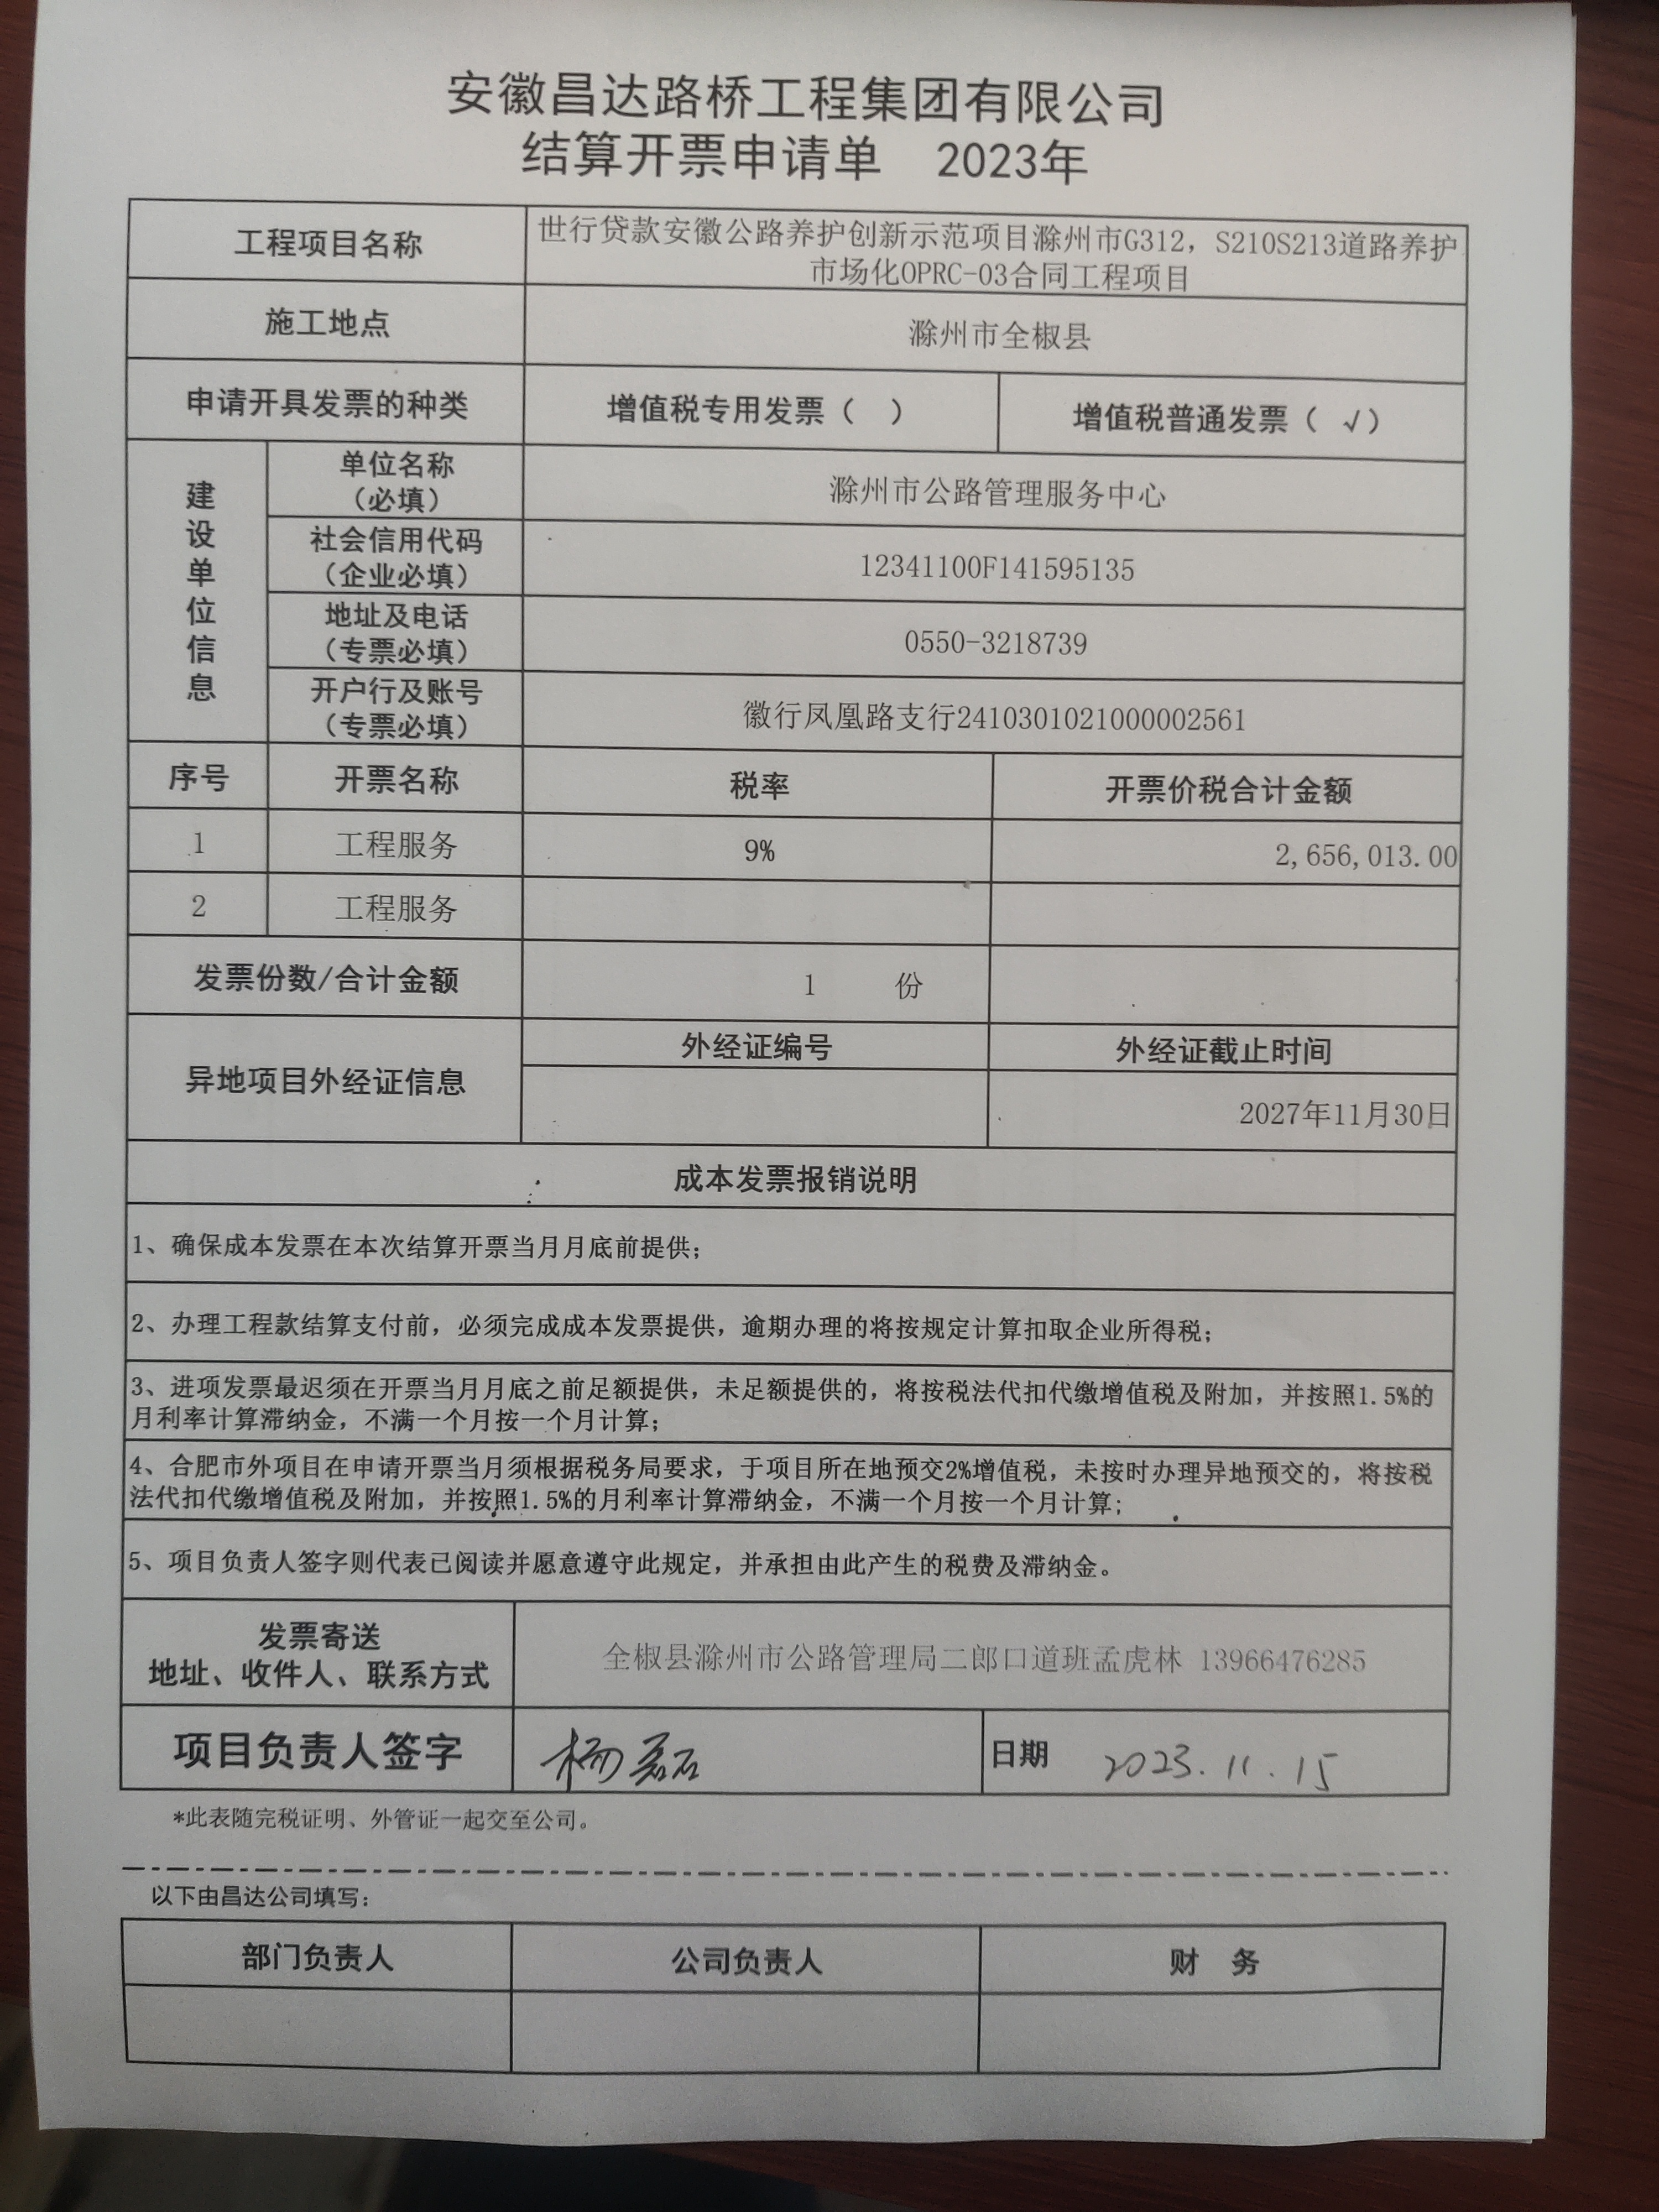 安徽昌达路桥工程集团有限公司
结算开票申请单 2023年
工程项目名称
世行贷款安徽公路养护创新示范项目滁州市G312，S210S213道路养护
市场化OPRC-03合同工程项目
施工地点
滁州市全椒县
申请开具发票的种类
增值税专用发票（ ）
增值税普通发票（ √）
建设单位信息
单位名称
（必填）
滁州市公路管理服务中心
社会信用代码
（企业必填）
12341100F141595135
地址及电话
（专票必填）
0550-3218739
开户行及账号
（专票必填）
徽行凤凰路支行2410301021000002561
序号 开票名称 税率 开票价税合计金额
1 工程服务 9% 2,656,013.00
2 工程服务
发票份数/合计金额 1 份
异地项目外经证信息
外经证编号 外经证截止时间
2027年11月30日
成本发票报销说明
1、确保成本发票在本次结算开票当月月底前提供；
2、办理工程款结算支付前，必须完成成本发票提供，逾期办理的将按规定计算扣取企业所得税；
3、进项发票最迟须在开票当月月底之前足额提供，未足额提供的，将按税法代扣代缴增值税及附加，并按照1.5%的
月利率计算滞纳金，不满一个月按一个月计算；
4、合肥市外项目在申请开票当月须根据税务局要求，于项目所在地预交2%增值税，未按时办理异地预交的，将按税
法代扣代缴增值税及附加，并按照1.5%的月利率计算滞纳金，不满一个月按一个月计算；
5、项目负责人签字则代表已阅读并愿意遵守此规定，并承担由此产生的税费及滞纳金。
发票寄送
地址、收件人、联系方式
全椒县滁州市公路管理局二郎口道班孟虎林 13966476285
项目负责人签字 杨磊 日期 2023.11.15
*此表随完税证明、外管证一起交至公司。
以下由昌达公司填写：
部门负责人 公司负责人 财 务